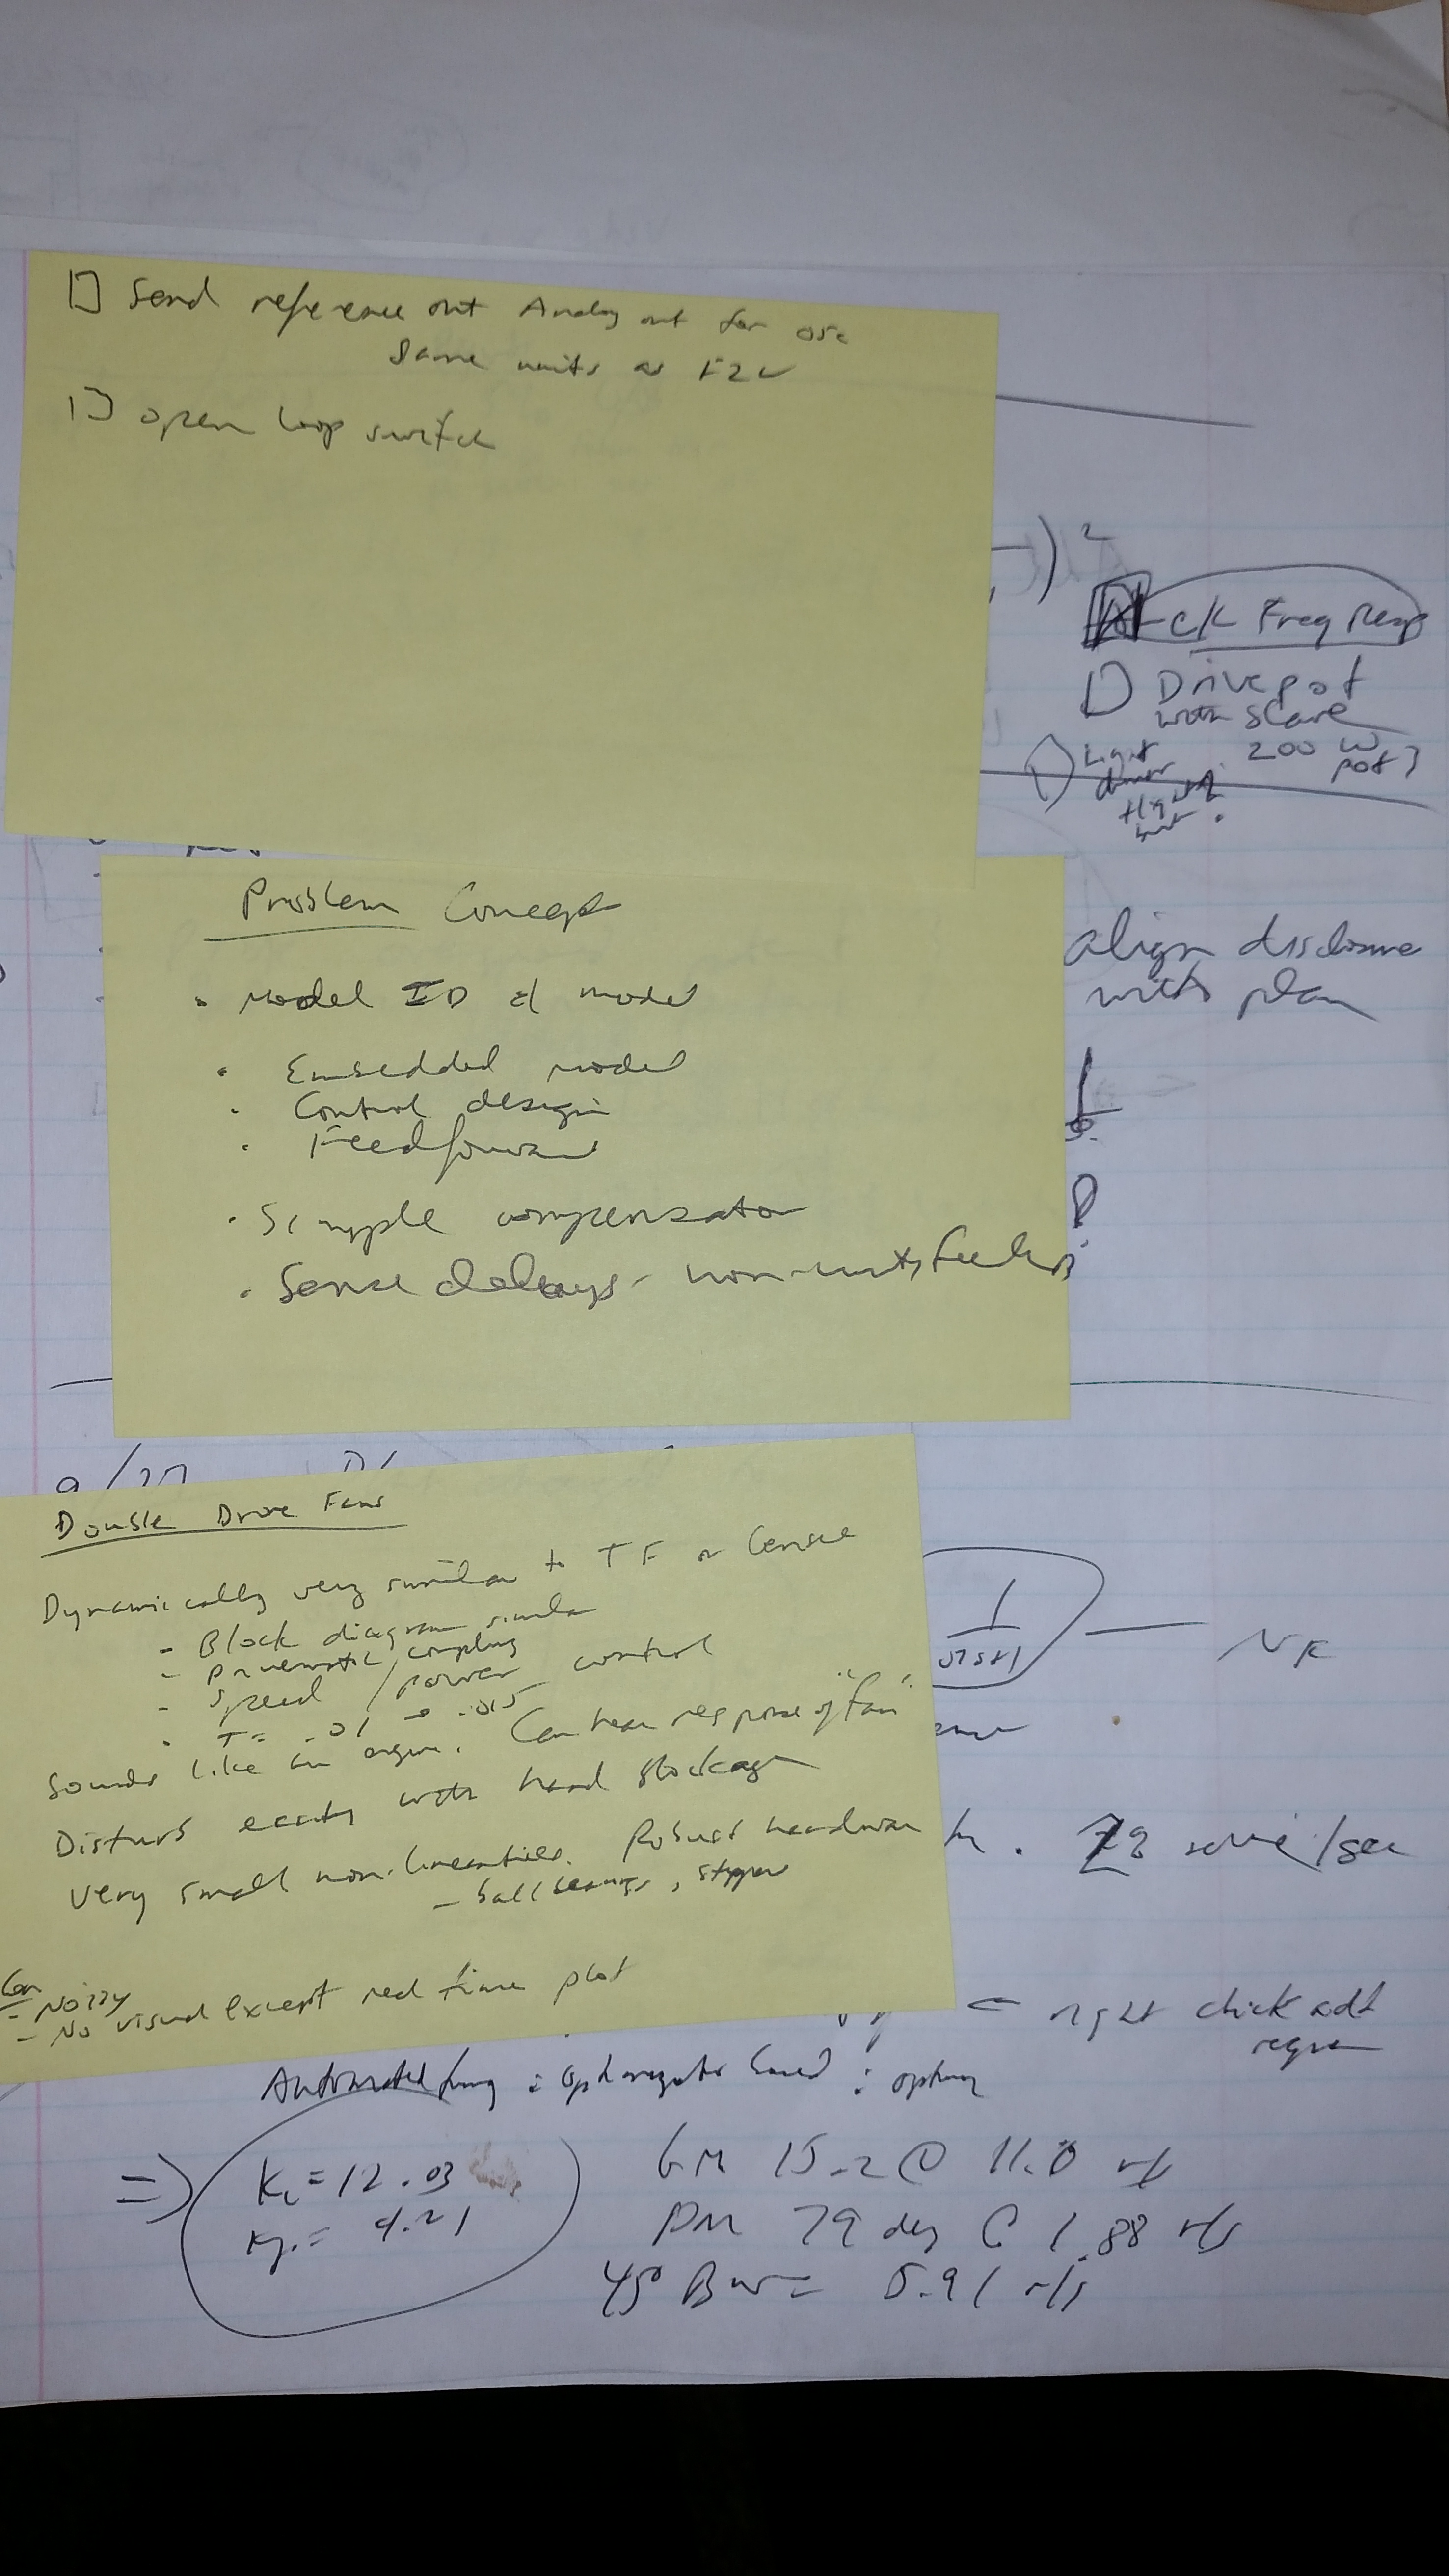 Send reference out Analog out for osc
same units as F2V
open loop switch
)²
ck Freq Resp
Drive pot
with slave
Light 200 W
pot?
align disclosure
with plan
Problem Concept
• Model ID of model
• Embedded model
• Control design
• Feedforward
• Simple compensator
• Sense delays - non-unity feedback
9/27
Double Drive Fans
Dynamically very similar to TF or
- Block diagram similar
- pneumatic coupling
- speed / power control
• T = .01 → .015
Sounds like an engine. Can hear response of "fan"
Disturb easily with hand blockage
Very small non-linearities. Robust hardware
- ball bearings,
Con
- Noisy
- No visual except real time plot
1
NF
/sec
← right click add
Automated tung : optimizats based :
⇒ Ki = 12.03
Kp = 4.21
GM 15.2 @ 11.0 r/s
PM 79 deg @ 1.88 r/s
45° BW = 5.91 r/s